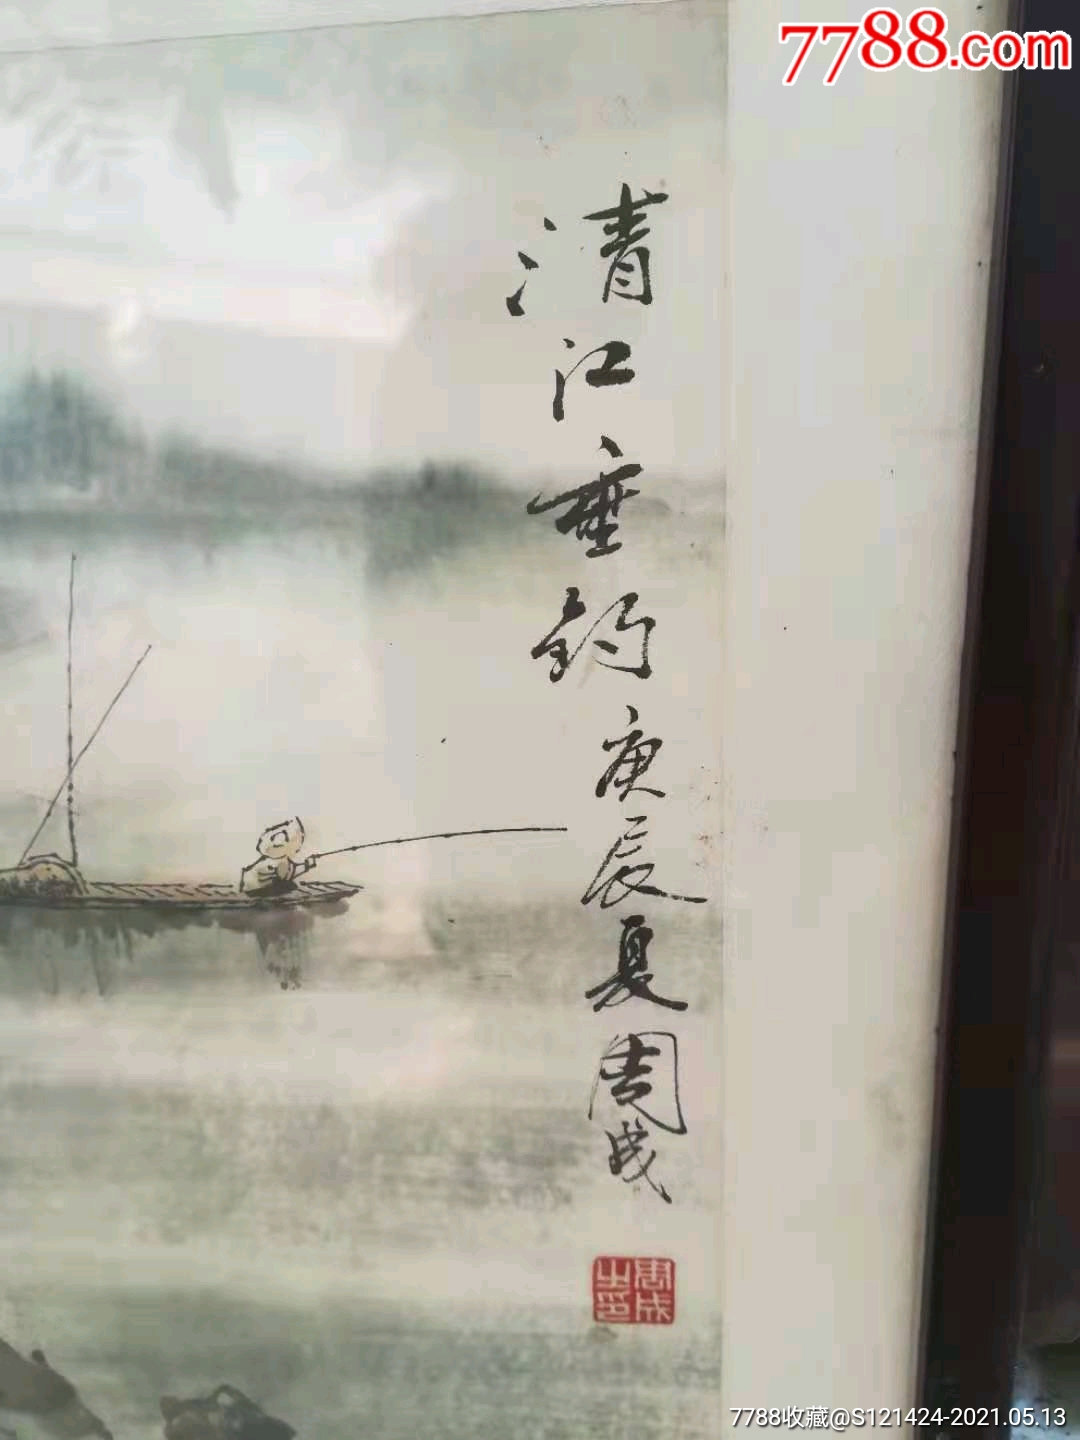 7788.com
清江垂钓庚辰夏周成
周成之印
7788收藏@S121424-2021.05.13